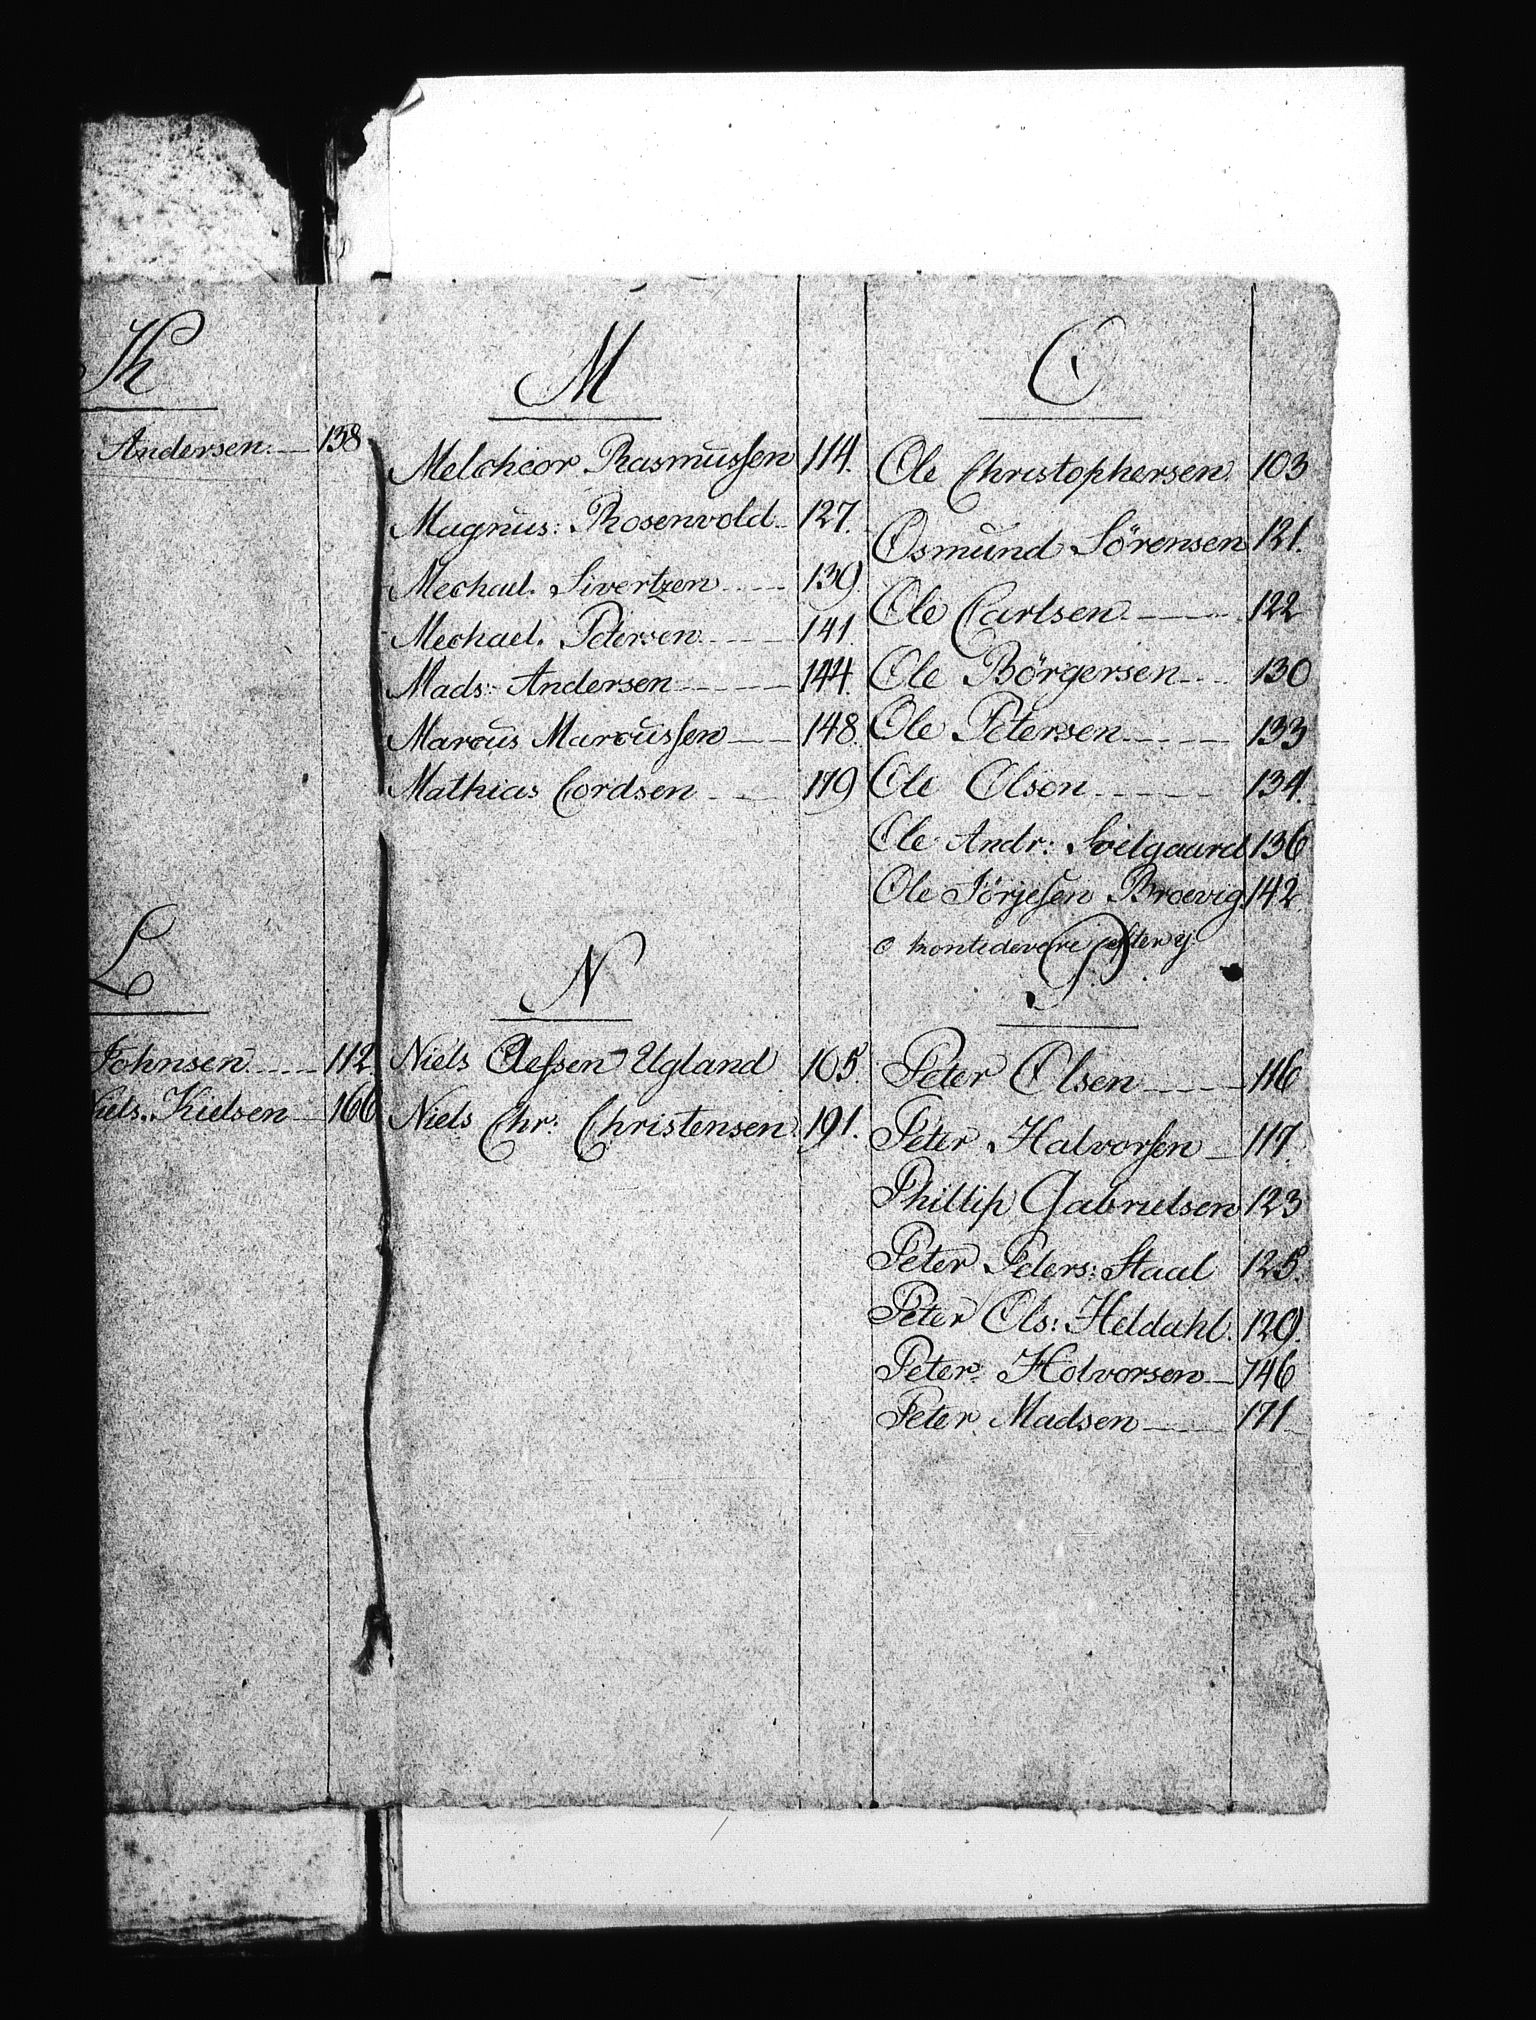 K
Andersen. 138
L
Johnsen 112
Kielsen 166
M
Melchior Rasmussen 114.
Magnus: Rosenvold 127.
Mechael. Sivertzen 139.
Mechael. Petersen 141
Mads: Andersen 144.
Marcus Marcussen 148.
Mathias Cordsen 179
N
Niels Olessen Ugland 105.
Niels Chr: Christensen. 191.
O
Ole Christophersen. 103
Osmund Sörensen 121.
Ole Carlsen 122
Ole Börgersen 130
Ole Petersen 133
Ole Olson 134.
Ole Andr: Soelgaard 136
Ole Jörjesen Broevig 142.
O efter y:
P
Peter Olsen 116
Peter Halvorsen 117.
Phillip Gabrielsen 123
Peter Peders: Staal 125.
Peter Ols: Heldahl. 129.
Peter. Holvorsen 146
Peter. Madsen 171